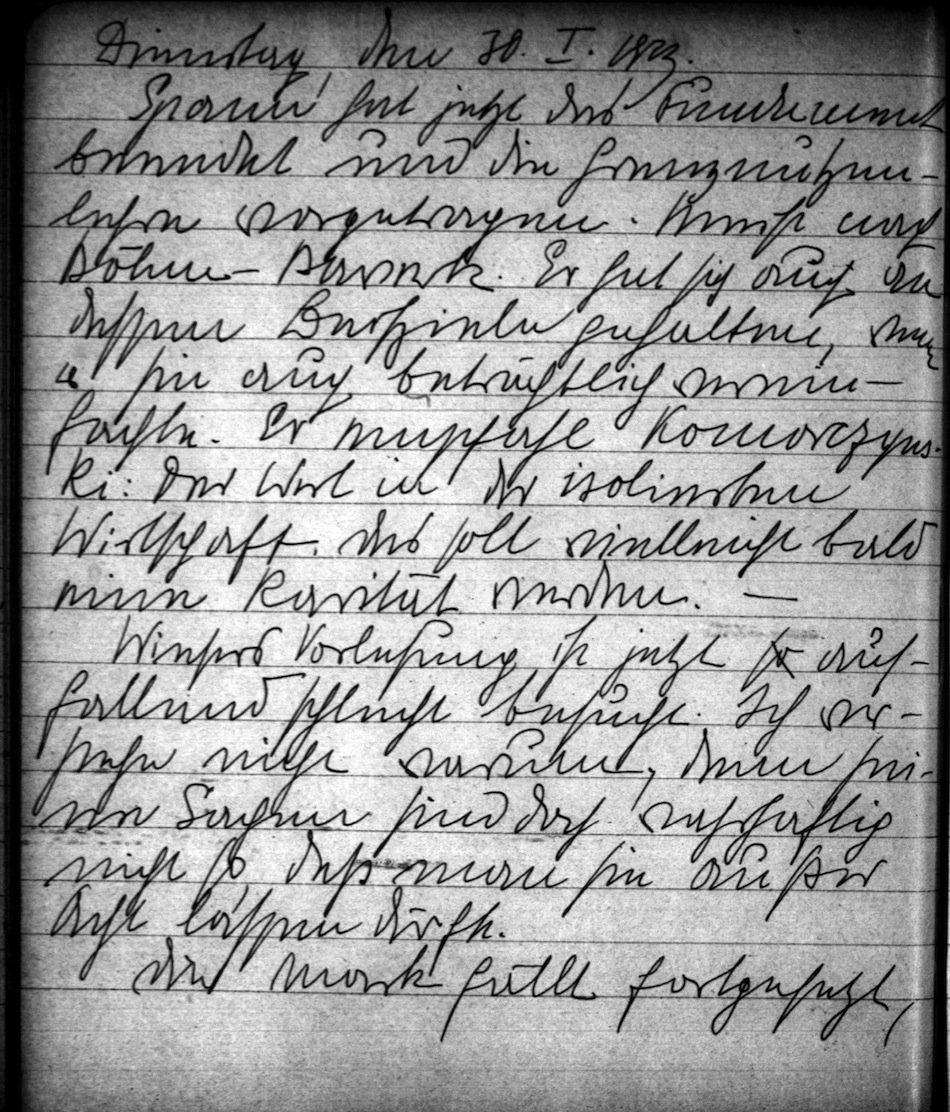 Dienstag den 30. I. 1923.
Spann hat jetzt das Fundament
beendet und die Grenznutzen-
lehre vorgetragen. Meist nach
Böhm-Bawerk. Er hat sich auch an
dessen Beispiele gehalten, wenn
er sie auch beträchtlich verein-
fachte. Er empfahl Komorzyns-
ki: Der Wert in der isolierten
Wirtschaft. Das soll vielleicht bald
eine Rarität werden. —
Wiesers Vorlesung ist jetzt so auf-
fallend schlecht besucht. Ich ver-
stehe nicht warum, denn sei-
ne Sachen sind doch wahrhaftig
nicht so, daß man sie außer
Acht lassen dürfte.
Die Mark fällt fortgesetzt,